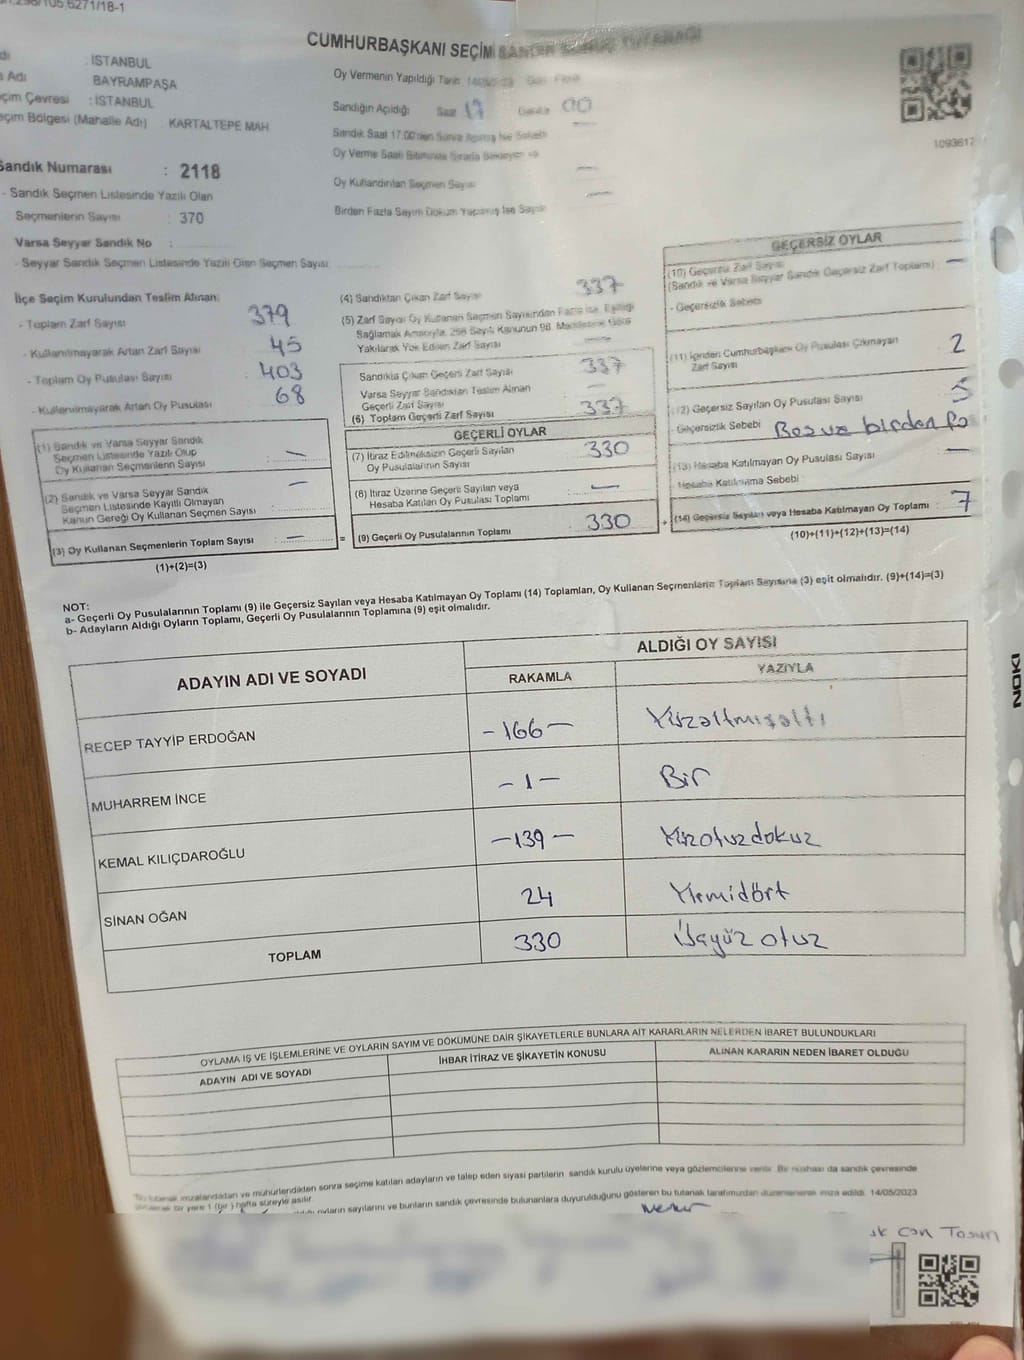 CUMHURBAŞKANI SEÇİMİ SANDIK SONUÇ TUTANAĞI
: İSTANBUL
Adı BAYRAMPAŞA
Seçim Çevresi : İSTANBUL
Seçim Bölgesi (Mahalle Adı) KARTALTEPE MAH
Sandık Numarası : 2118
- Sandık Seçmen Listesinde Yazılı Olan
Seçmenlerin Sayısı : 370
Varsa Seyyar Sandık No :
- Seyyar Sandık Seçmen Listesinde Yazılı Olan Seçmen Sayısı
Oy Vermenin Yapıldığı Tarih
Sandığın Açıldığı Saat 17 Dakika 00
Sandık Saat 17.00'den Sonra Açılmış İse Sebebi
Oy Verme Saati Bitiminde Sırada Bekleyen ve
Oy Kullandırılan Seçmen Sayısı
Birden Fazla Sayım Döküm Yapılmış İse Sayısı
1093617
İlçe Seçim Kurulundan Teslim Alınan
- Toplam Zarf Sayısı 379
- Kullanılmayarak Artan Zarf Sayısı 45
- Toplam Oy Pusulası Sayısı 403
- Kullanılmayarak Artan Oy Pusulası 68
(1) Sandık ve Varsa Seyyar Sandık
Seçmen Listesinde Yazılı Olup
Oy Kullanan Seçmenlerin Sayısı : —
(2) Sandık ve Varsa Seyyar Sandık
Seçmen Listesinde Kayıtlı Olmayan
Kanun Gereği Oy Kullanan Seçmen Sayısı : —
(3) Oy Kullanan Seçmenlerin Toplam Sayısı : —
(1)+(2)=(3)
(4) Sandıktan Çıkan Zarf Sayısı 337
(5) Zarf Sayısı Oy Kullanan Seçmen Sayısından Fazla ise, Eşitliği
Sağlamak Amacıyla, 298 Sayılı Kanunun 98. Maddesine Göre
Yakılarak Yok Edilen Zarf Sayısı —
Sandıkta Çıkan Geçerli Zarf Sayısı 337
Varsa Seyyar Sandıktan Teslim Alınan
Geçerli Zarf Sayısı —
(6) Toplam Geçerli Zarf Sayısı 337
GEÇERLİ OYLAR
(7) İtiraz Edilmeksizin Geçerli Sayılan
Oy Pusulalarının Sayısı 330
(8) İtiraz Üzerine Geçerli Sayılan veya
Hesaba Katılan Oy Pusulası Toplamı : —
(9) Geçerli Oy Pusulalarının Toplamı : 330
GEÇERSİZ OYLAR
(10) Geçersiz Zarf Sayısı —
(Sandık ve Varsa Seyyar Sandık Geçersiz Zarf Toplamı)
- Geçersizlik Sebebi
(11) İçinden Cumhurbaşkanı Oy Pusulası Çıkmayan
Zarf Sayısı 2
(12) Geçersiz Sayılan Oy Pusulası Sayısı 5
Geçersizlik Sebebi Boş ve birden fa
(13) Hesaba Katılmayan Oy Pusulası Sayısı —
Hesaba Katılmama Sebebi
(14) Geçersiz Sayılan veya Hesaba Katılmayan Oy Toplamı : 7
(10)+(11)+(12)+(13)=(14)
NOT:
a- Geçerli Oy Pusulalarının Toplamı (9) ile Geçersiz Sayılan veya Hesaba Katılmayan Oy Toplamı (14) Toplamları, Oy Kullanan Seçmenlerin Toplam Sayısına (3) eşit olmalıdır. (9)+(14)=(3)
b- Adayların Aldığı Oyların Toplamı, Geçerli Oy Pusulalarının Toplamına (9) eşit olmalıdır.
ADAYIN ADI VE SOYADI ALDIĞI OY SAYISI
RAKAMLA YAZIYLA
RECEP TAYYİP ERDOĞAN -166- Yüzaltmışaltı
MUHARREM İNCE -1- Bir
KEMAL KILIÇDAROĞLU -139- Yüzotuzdokuz
SİNAN OĞAN 24 Yirmidört
TOPLAM 330 Üçyüz otuz
OYLAMA İŞ VE İŞLEMLERİNE VE OYLARIN SAYIM VE DÖKÜMÜNE DAİR ŞİKAYETLERLE BUNLARA AİT KARARLARIN NELERDEN İBARET BULUNDUKLARI
ADAYIN ADI VE SOYADI İHBAR İTİRAZ VE ŞİKAYETİN KONUSU ALINAN KARARIN NEDEN İBARET OLDUĞU
tutanak imzalandıktan ve mühürlendikten sonra seçime katılan adayların ve talep eden siyasi partilerin sandık kurulu üyelerine veya gözlemcilerine verilir. Bir nüshası da sandık çevresinde
bir yere 1 (bir) hafta süreyle asılır.
oyların sayılarını ve bunların sandık çevresinde bulunanlara duyurulduğunu gösteren bu tutanak tarafımızdan düzenlenerek imza edildi. 14/05/2023
Can Tosun
NOKI